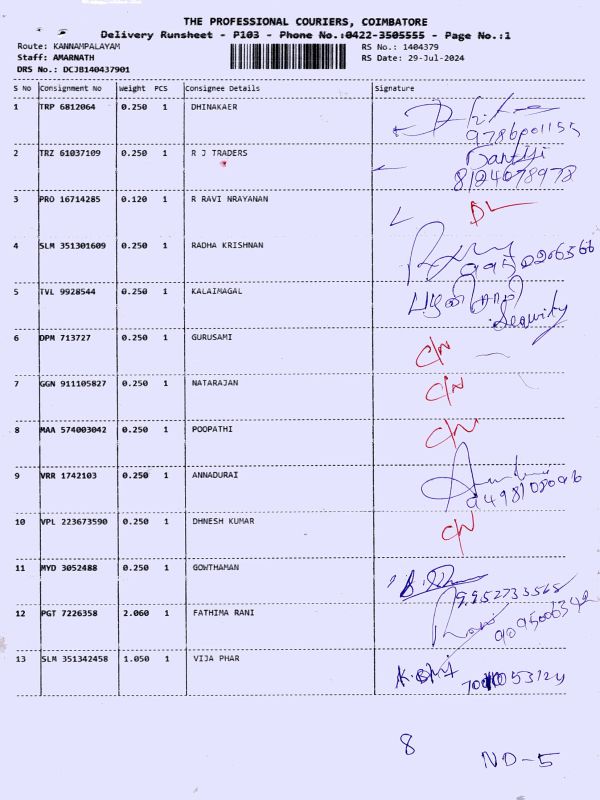 THE PROFESSIONAL COURIERS, COIMBATORE
Delivery Runsheet - P103 - Phone No.:0422-3505555 - Page No.:1
Route: KANNAMPALAYAM RS No.: 1404379
Staff: AMARNATH RS Date: 29-Jul-2024
DRS No.: DCJB140437901
S No Consignment No Weight PCS Consignee Details Signature
1 TRP 6812064 0.250 1 DHINAKAER
9786001155
2 TRZ 61037109 0.250 1 R J TRADERS
8124078978
3 PRO 16714285 0.120 1 R RAVI NRAYANAN DL
4 SLM 351301609 0.250 1 RADHA KRISHNAN
5 TVL 9928544 0.250 1 KALAIMAGAL
Security
6 DPM 713727 0.250 1 GURUSAMI C/N
7 GGN 911105827 0.250 1 NATARAJAN C/N
8 MAA 574003042 0.250 1 POOPATHI C/N
9 VRR 1742103 0.250 1 ANNADURAI
10 VPL 223673590 0.250 1 DHNESH KUMAR C/N
11 MYD 3052488 0.250 1 GOWTHAMAN
9952733565
12 PGT 7226358 2.060 1 FATHIMA RANI
13 SLM 351342458 1.050 1 VIJA PHAR
8
ND-5